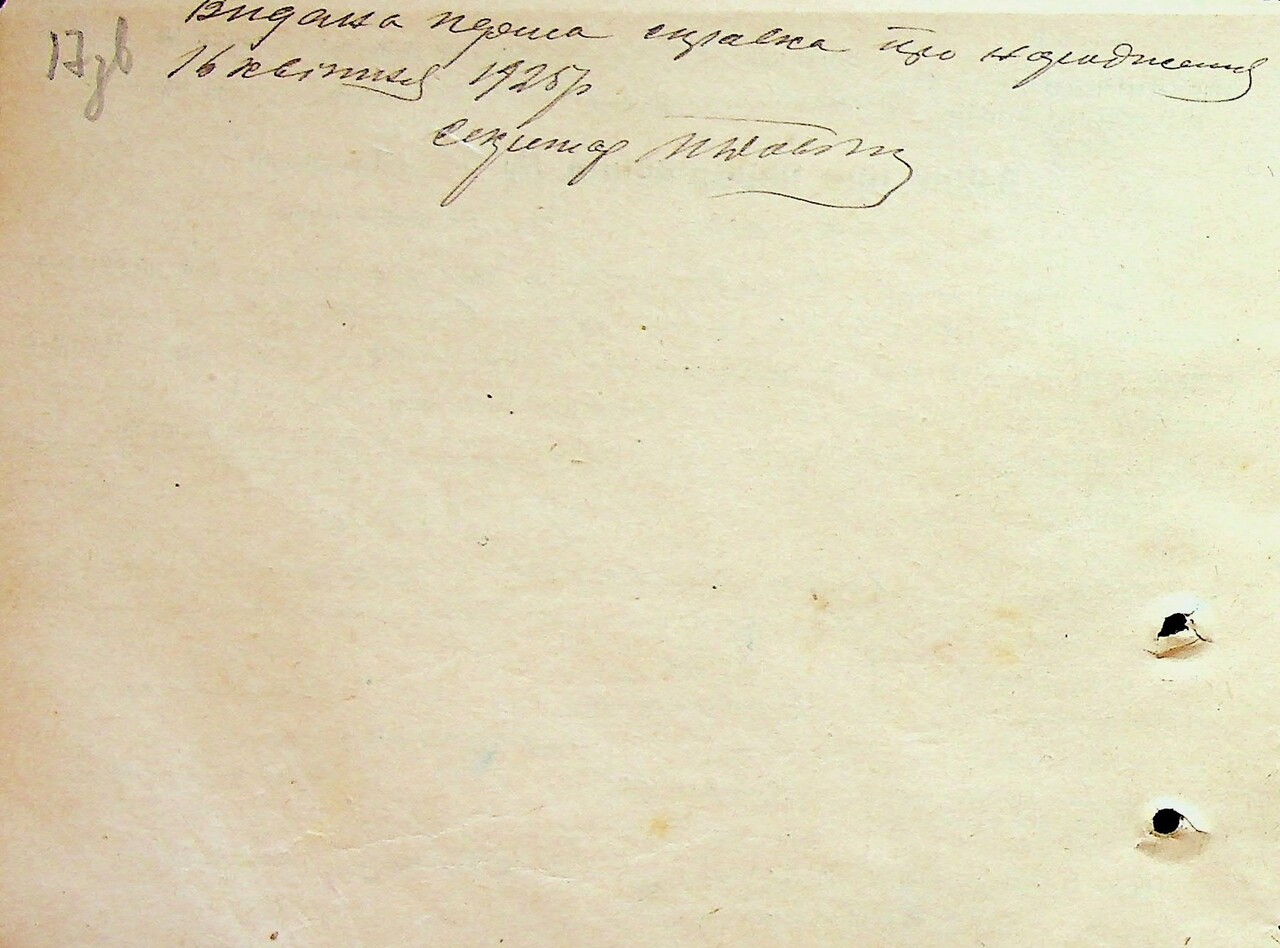 17зв
Видана перша справка про народження
16 квітня 1925р
Секретар